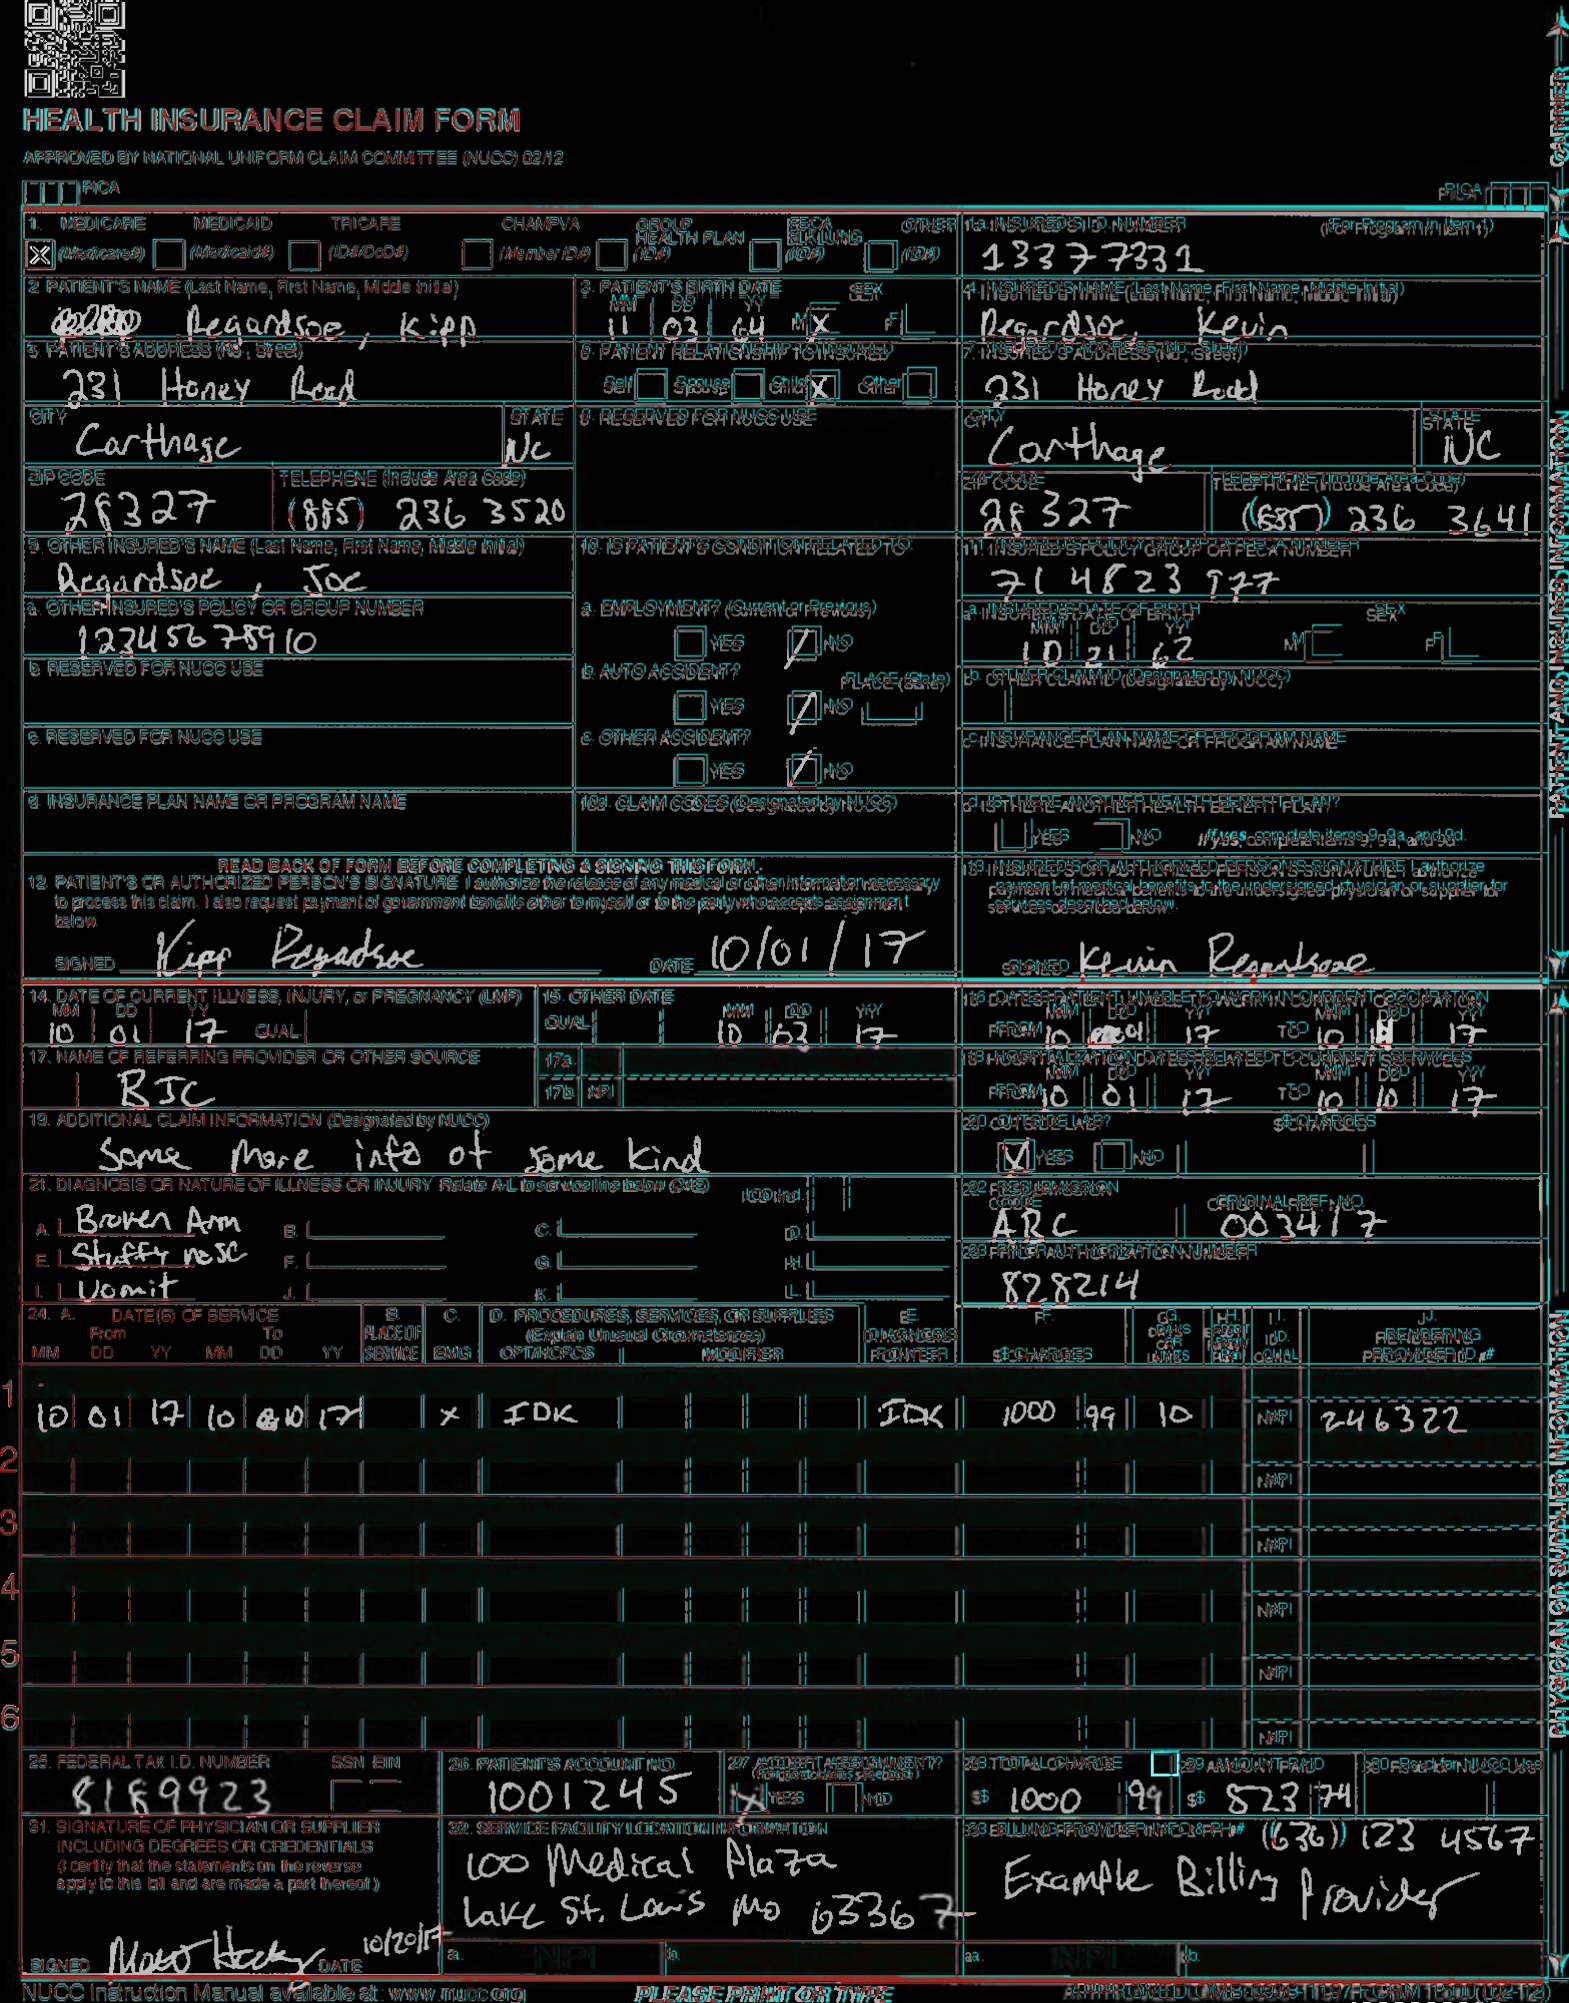 HEALTH INSURANCE CLAIM FORM
APPROVED BY NATIONAL UNIFORM CLAIM COMMITTEE (NUCC) 02/12
PICA PICA
CARRIER
1. MEDICARE MEDICAID TRICARE CHAMPVA GROUP HEALTH PLAN FECA BLK LUNG OTHER
(Medicare#) (Medicaid#) (ID#/DoD#) (Member ID#) (ID#) (ID#) (ID#)
1a. INSURED'S I.D. NUMBER (For Program in Item 1)
13377331
2. PATIENT'S NAME (Last Name, First Name, Middle Initial)
Regardsoe, Kipp
3. PATIENT'S BIRTH DATE SEX
MM DD YY
11 03 64 M X F
4. INSURED'S NAME (Last Name, First Name, Middle Initial)
Regardsoe, Kevin
5. PATIENT'S ADDRESS (No., Street)
231 Honey Road
6. PATIENT RELATIONSHIP TO INSURED
Self Spouse Child X Other
7. INSURED'S ADDRESS (No., Street)
231 Honey Road
CITY STATE
Carthage NC
8. RESERVED FOR NUCC USE
CITY STATE
Carthage NC
ZIP CODE TELEPHONE (Include Area Code)
28327 (885) 236 3520
ZIP CODE TELEPHONE (Include Area Code)
28327 236 3641
9. OTHER INSURED'S NAME (Last Name, First Name, Middle Initial)
Regardsoe, Joe
10. IS PATIENT'S CONDITION RELATED TO:
11. INSURED'S POLICY GROUP OR FECA NUMBER
714823977
a. OTHER INSURED'S POLICY OR GROUP NUMBER
12345678910
a. EMPLOYMENT? (Current or Previous)
YES NO
a. INSURED'S DATE OF BIRTH SEX
MM DD YY
10 21 62 M F
b. RESERVED FOR NUCC USE
b. AUTO ACCIDENT? PLACE (State)
YES NO
b. OTHER CLAIM ID (Designated by NUCC)
c. RESERVED FOR NUCC USE
c. OTHER ACCIDENT?
YES NO
c. INSURANCE PLAN NAME OR PROGRAM NAME
d. INSURANCE PLAN NAME OR PROGRAM NAME
10d. CLAIM CODES (Designated by NUCC)
d. IS THERE ANOTHER HEALTH BENEFIT PLAN?
YES NO If yes, complete items 9, 9a, and 9d.
READ BACK OF FORM BEFORE COMPLETING & SIGNING THIS FORM.
12. PATIENT'S OR AUTHORIZED PERSON'S SIGNATURE I authorize the release of any medical or other information necessary
to process this claim. I also request payment of government benefits either to myself or to the party who accepts assignment
below.
SIGNED Kipp Regardsoe DATE 10/01/17
13. INSURED'S OR AUTHORIZED PERSON'S SIGNATURE I authorize
payment of medical benefits to the undersigned physician or supplier for
services described below.
SIGNED Kevin Regardsoe
PATIENT AND INSURED INFORMATION
14. DATE OF CURRENT ILLNESS, INJURY, or PREGNANCY (LMP)
MM DD YY
10 01 17 QUAL.
15. OTHER DATE
QUAL. MM DD YY
10 02 17
16. DATES PATIENT UNABLE TO WORK IN CURRENT OCCUPATION
MM DD YY MM DD YY
FROM 10 01 17 TO 10 17
17. NAME OF REFERRING PROVIDER OR OTHER SOURCE
BJC
17a.
17b. NPI
18. HOSPITALIZATION DATES RELATED TO CURRENT SERVICES
MM DD YY MM DD YY
FROM 10 01 17 TO 10 10 17
19. ADDITIONAL CLAIM INFORMATION (Designated by NUCC)
Some more info of some kind
20. OUTSIDE LAB? $ CHARGES
YES NO
21. DIAGNOSIS OR NATURE OF ILLNESS OR INJURY Relate A-L to service line below (24E) ICD Ind.
A. Broken Arm B. C. D.
E. Stuffy nose F. G. H.
I. Vomit J. K. L.
22. RESUBMISSION CODE ORIGINAL REF. NO.
ABC 003417
23. PRIOR AUTHORIZATION NUMBER
828214
24. A. DATE(S) OF SERVICE B. C. D. PROCEDURES, SERVICES, OR SUPPLIES E. F. G. H. I. J.
From To PLACE OF (Explain Unusual Circumstances) DIAGNOSIS DAYS OR UNITS ID. RENDERING
MM DD YY MM DD YY SERVICE EMG CPT/HCPCS MODIFIER POINTER $ CHARGES QUAL. PROVIDER ID. #
1 10 01 17 10 10 17 X IDK IDK 1000 99 10 NPI 246322
2 NPI
3 NPI
4 NPI
5 NPI
6 NPI
PHYSICIAN OR SUPPLIER INFORMATION
25. FEDERAL TAX I.D. NUMBER SSN EIN
8189923
26. PATIENT'S ACCOUNT NO.
1001245
27. ACCEPT ASSIGNMENT?
X YES NO
28. TOTAL CHARGE
$ 1000 99
29. AMOUNT PAID
$ 823 74
30. Rsvd for NUCC Use
31. SIGNATURE OF PHYSICIAN OR SUPPLIER
INCLUDING DEGREES OR CREDENTIALS
(I certify that the statements on the reverse
apply to this bill and are made a part thereof.)
SIGNED DATE 10/20/17
32. SERVICE FACILITY LOCATION INFORMATION
100 Medical Plaza
Lake St. Louis Mo 63367
a. NPI b.
33. BILLING PROVIDER INFO & PH # (636) 123 4567
Example Billing Provider
a. NPI b.
NUCC Instruction Manual available at: www.nucc.org
PLEASE PRINT OR TYPE